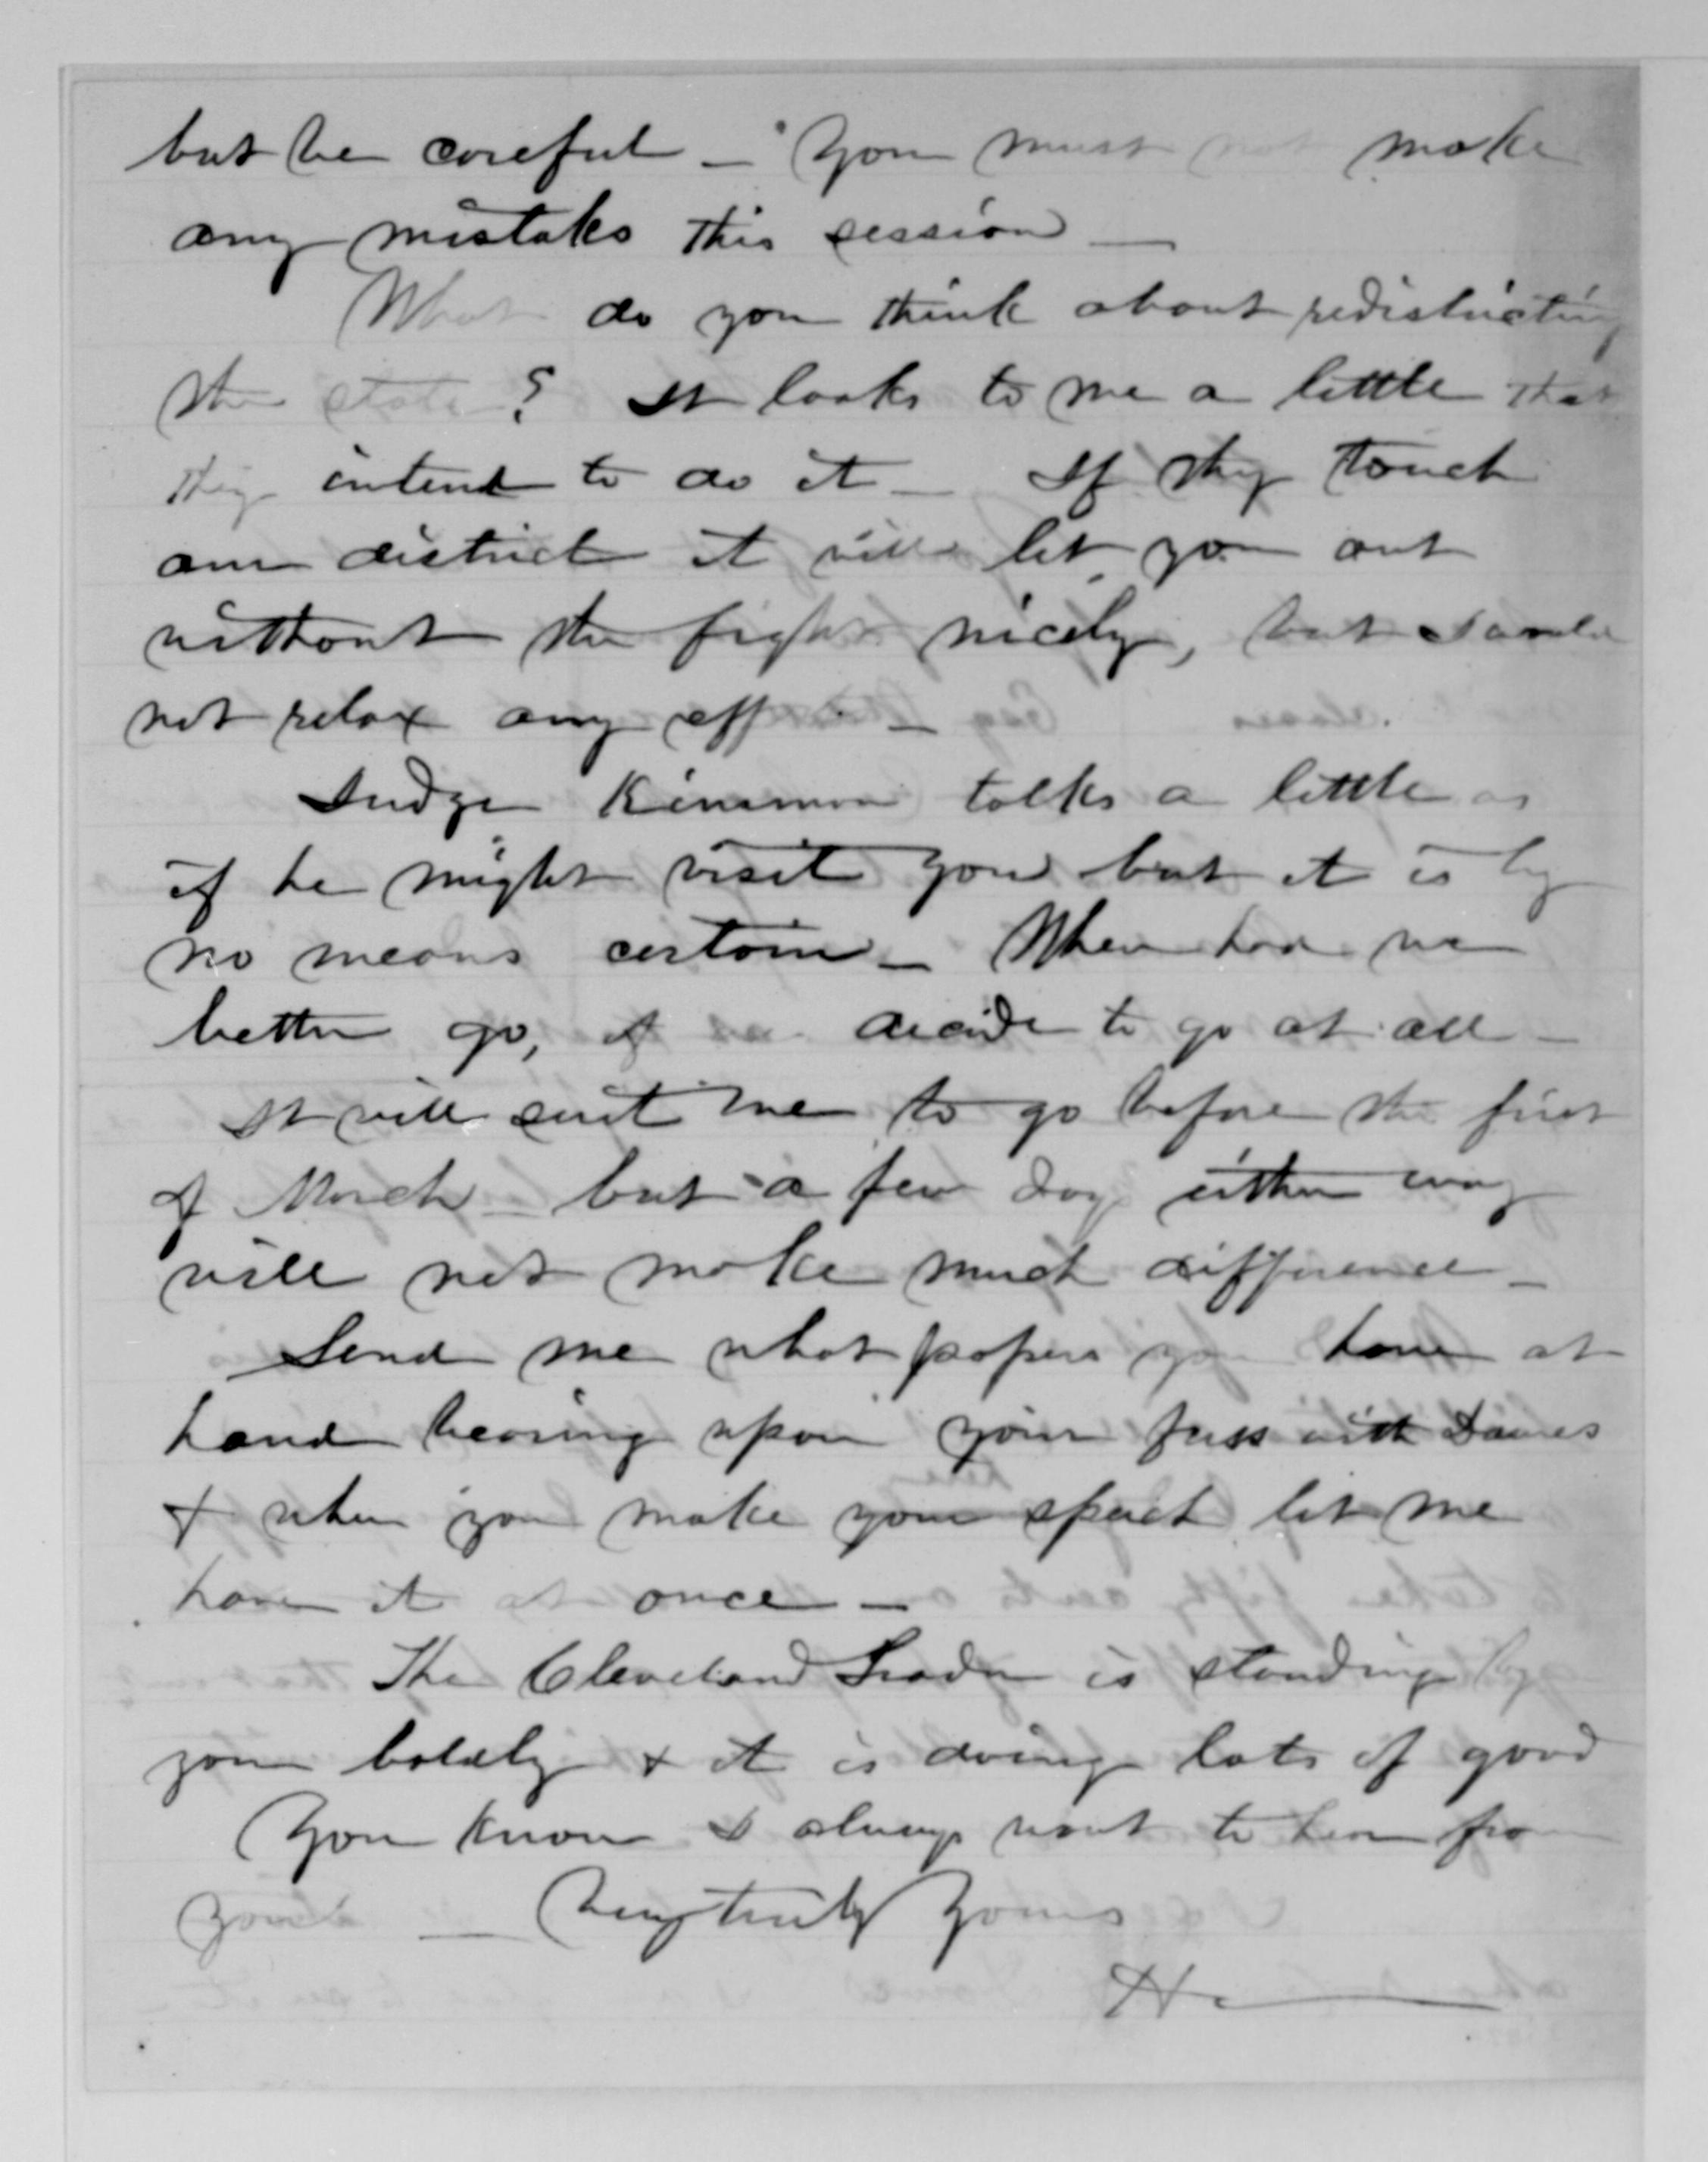 but be careful — You must not make
any mistakes this session —
What do you think about redistricting
the state? It looks to me a little that
they intend to do it — If they touch
our district it will let you out
without the fight nicely, but I would
not relax any —
Judge Kinsman talks a little as
if he might visit you but it is by
no means certain — When had we
better go, if we decide to go at all —
It will suit me to go before the first
of March — but a few days either way
will not make much difference —
Send me what papers you have at
hand bearing upon your fuss with Dawes
& when you make your speech let me
have it at once —
The Cleveland Leader is standing by
you boldly & it is doing lots of good
You know I always want to hear from
you — Very truly Yours
H